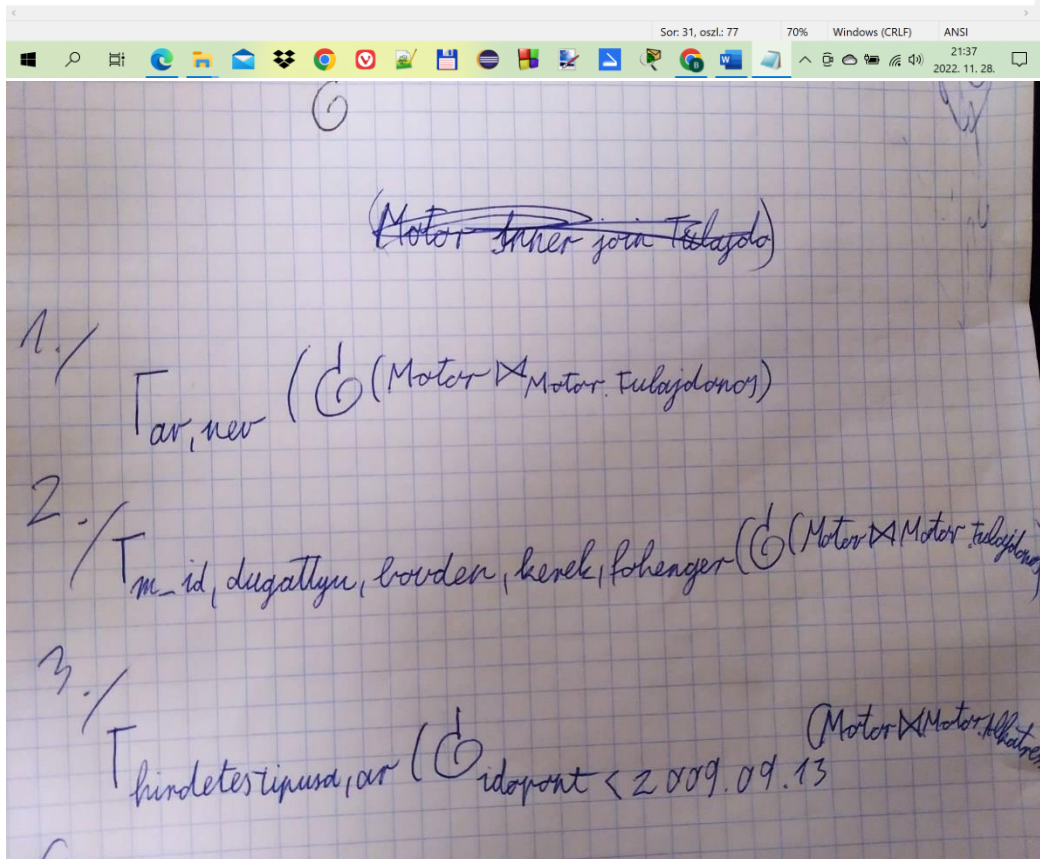 Sor: 31, oszl.: 77 70% Windows (CRLF) ANSI
21:37
2022. 11. 28.
(Motor Inner join Tulajdo)
1./
π ar, nev (σ (Motor ⋈ Motor.Tulajdonos)
2./
π m_id, dugattyu, bovden, kerek, fohenger (σ (Motor ⋈ Motor.Tulajdonos)
3./
π hirdetestipusa, ar (σ idopont < 2009.09.13 (Motor ⋈ Motor.